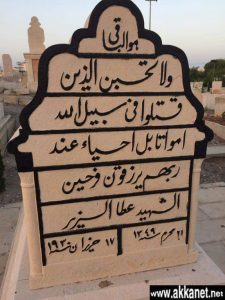 هو الباقي
ولا تحسبن الذين
قتلوا في سبيل الله
امواتا بل احياء عند
ربهم يرزقون فرحين
الشهيد عطا الزير
٢١ محرم ١٣٤٩ ١٧ حزيران ١٩٣٠
www.akkanet.net